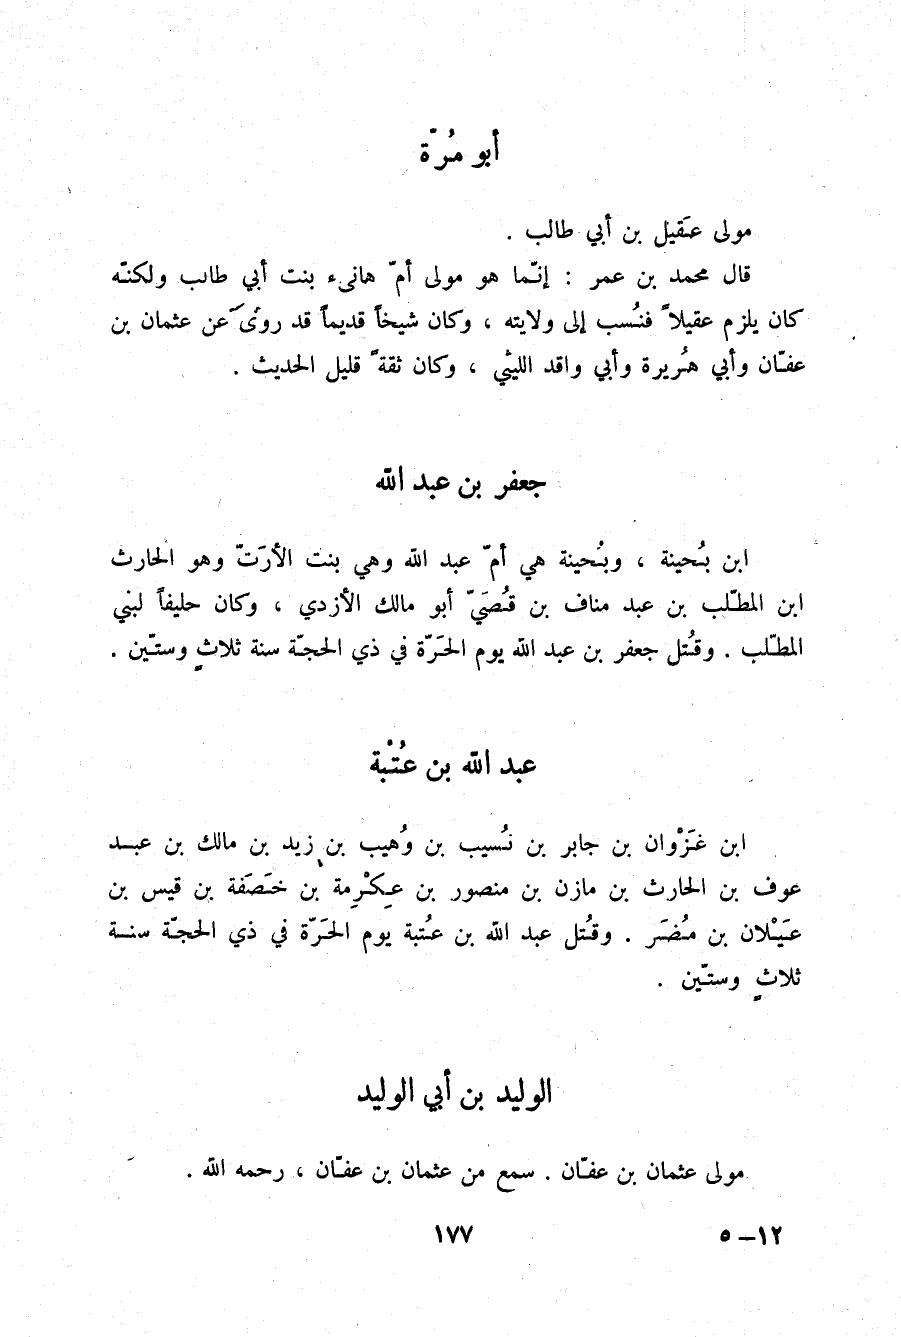 أبو مُرّة
مولى عَقيل بن أبي طالب .
قال محمد بن عمر : إنّما هو مولى أمّ هانىء بنت أبي طالب ولكنّه
كان يلزم عقيلاً فنُسب إلى ولايته ، وكان شيخاً قديماً قد روى عن عثمان بن
عفّان وأبي هُريرة وأبي واقد الليثي ، وكان ثقةً قليل الحديث .
جعفر بن عبد الله
ابن بُحينة ، وبُحينة هي أمّ عبد الله وهي بنت الأرَتّ وهو الحارث
ابن المطّلب بن عبد مناف بن قُصَيّ أبو مالك الأزدي ، وكان حليفاً لبني
المطّلب . وقُتل جعفر بن عبد الله يوم الحَرّة في ذي الحجّة سنة ثلاثٍ وستّين .
عبد الله بن عُتْبة
ابن غَزْوان بن جابر بن نُسيب بن وُهيب بن زيد بن مالك بن عبد
عوف بن الحارث بن مازن بن منصور بن عِكْرِمة بن خَصَفة بن قيس بن
عَيْلان بن مُضَر . وقُتل عبد الله بن عُتبة يوم الحَرّة في ذي الحجّة سنة
ثلاثٍ وستّين .
الوليد بن أبي الوليد
مولى عثمان بن عفّان . سمع من عثمان بن عفّان ، رحمه الله .
١٢ – ٥
١٧٧